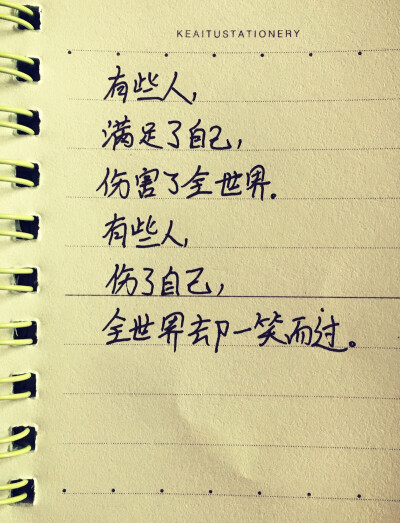 KEAITUSTATIONERY
有些人,
满足了自己,
伤害了全世界。
有些人,
伤了自己,
全世界却一笑而过。